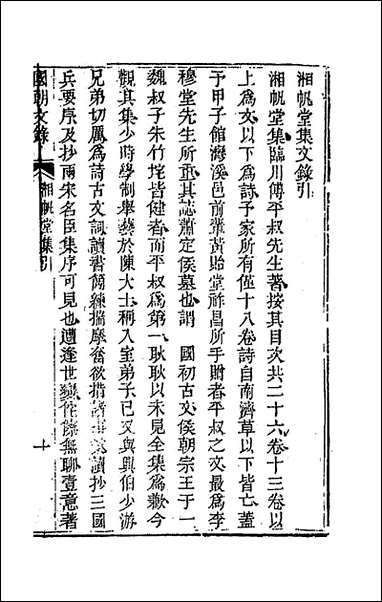 湘帆堂集文錄引
湘帆堂集臨川傅平叔先生著按其目次共二十六卷十三卷以
上爲文以下爲詩予家所有僅十八卷詩自南濟草以下皆亡蓋
予甲子館灣溪邑前輩黃貽堂祚昌所手贈者平叔之文最爲李
穆堂先生所重其誌蕭定侯墓也謂　國初古文侯朝宗王于一
魏叔子朱竹垞皆健者而平叔爲第一耿耿以未見全集爲歉今
觀其集少時學制舉藝於陳大士稱入室弟子已又與興伯少游
兄弟切厲爲詩古文詞讀書簡練揣摩奮欲措諸 讀抄三國
兵要序及抄兩宋名臣集序可見也遭逢世變侘傺無聊壹意著
國朝文錄　湘帆堂集引　十